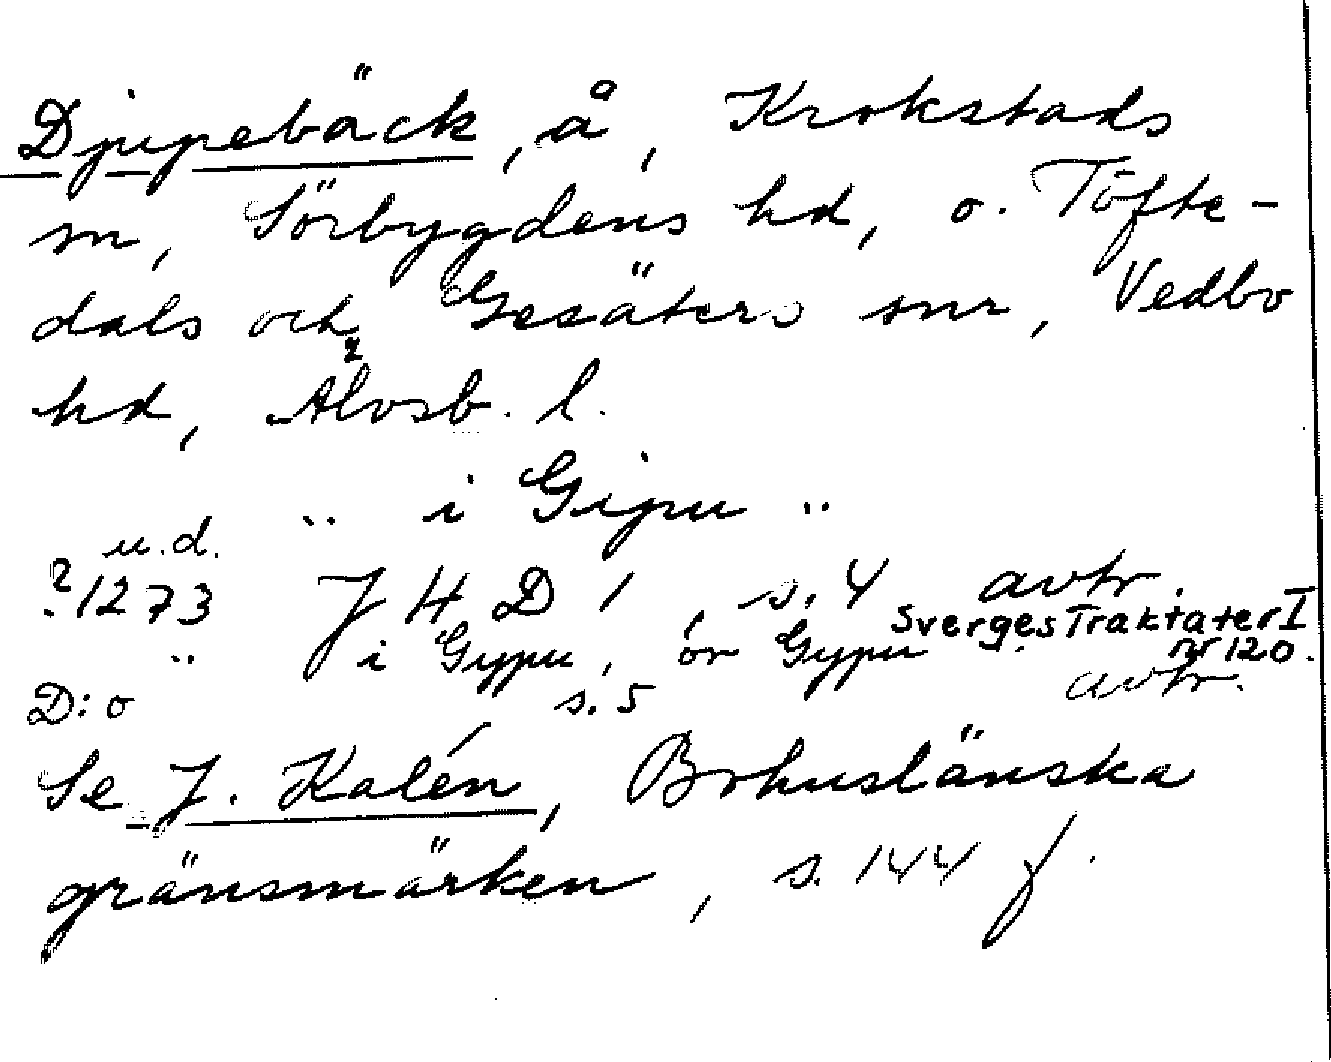 Djupebäck, å, Krokstads
sn, Sörbygdens hd, o. Töfte-
dals och Gesäters snr, Vedbo
hd, Älvsb. l.
" i Gipu "
u.d.
?1273 J H D 1, s. 4 avtr.
Sverges Traktater I
nr 120.
" i Gypu, ór Gypu
D:o s. 5 avtr.
Se J. Kalén, Bohuslänska
gränsmärken, s. 144 f.